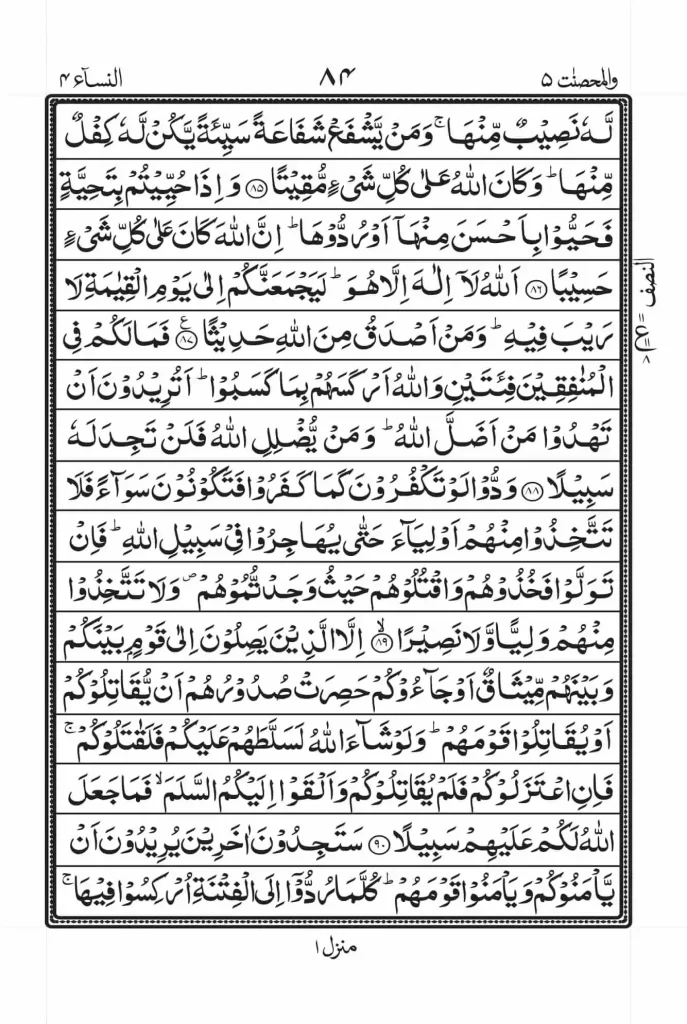 والمحصنٰت ۵
۸۴
النسآء ۴
لَّهٗ نَصِيْبٌ مِّنْهَا ۚ وَمَنْ يَّشْفَعْ شَفَاعَةً سَيِّئَةً يَّكُنْ لَّهٗ كِفْلٌ
مِّنْهَا ؕ وَكَانَ اللّٰهُ عَلٰى كُلِّ شَىْءٍ مُّقِيْتًا ﴿۸۵﴾ وَ اِذَا حُيِّيْتُمْ بِتَحِيَّةٍ
فَحَيُّوْا بِاَحْسَنَ مِنْهَاۤ اَوْ رُدُّوْهَا ؕ اِنَّ اللّٰهَ كَانَ عَلٰى كُلِّ شَىْءٍ
حَسِيْبًا ﴿۸۶﴾ اَللّٰهُ لَاۤ اِلٰهَ اِلَّا هُوَ ؕ لَيَجْمَعَنَّكُمْ اِلٰى يَوْمِ الْقِيٰمَةِ لَا
رَيْبَ فِيْهِ ؕ وَمَنْ اَصْدَقُ مِنَ اللّٰهِ حَدِيْثًا ﴿۸۷﴾ ع فَمَا لَكُمْ فِى
الْمُنٰفِقِيْنَ فِئَتَيْنِ وَاللّٰهُ اَرْكَسَهُمْ بِمَا كَسَبُوْا ؕ اَتُرِيْدُوْنَ اَنْ
تَهْدُوْا مَنْ اَضَلَّ اللّٰهُ ؕ وَمَنْ يُّضْلِلِ اللّٰهُ فَلَنْ تَجِدَ لَهٗ
سَبِيْلًا ﴿۸۸﴾ وَدُّوْا لَوْ تَكْفُرُوْنَ كَمَا كَفَرُوْا فَتَكُوْنُوْنَ سَوَآءً فَلَا
تَتَّخِذُوْا مِنْهُمْ اَوْلِيَآءَ حَتّٰى يُهَاجِرُوْا فِىْ سَبِيْلِ اللّٰهِ ؕ فَاِنْ
تَوَلَّوْا فَخُذُوْهُمْ وَاقْتُلُوْهُمْ حَيْثُ وَجَدْتُّمُوْهُمْ ۪ وَلَا تَتَّخِذُوْا
مِنْهُمْ وَلِيًّا وَّلَا نَصِيْرًا ﴿۸۹﴾ ۙ اِلَّا الَّذِيْنَ يَصِلُوْنَ اِلٰى قَوْمٍۢ بَيْنَكُمْ
وَبَيْنَهُمْ مِّيْثَاقٌ اَوْ جَآءُوْكُمْ حَصِرَتْ صُدُوْرُهُمْ اَنْ يُّقَاتِلُوْكُمْ
اَوْ يُقَاتِلُوْا قَوْمَهُمْ ؕ وَلَوْ شَآءَ اللّٰهُ لَسَلَّطَهُمْ عَلَيْكُمْ فَلَقٰتَلُوْكُمْ ۚ
فَاِنِ اعْتَزَلُوْكُمْ فَلَمْ يُقَاتِلُوْكُمْ وَاَلْقَوْا اِلَيْكُمُ السَّلَمَ ۙ فَمَا جَعَلَ
اللّٰهُ لَكُمْ عَلَيْهِمْ سَبِيْلًا ﴿۹۰﴾ سَتَجِدُوْنَ اٰخَرِيْنَ يُرِيْدُوْنَ اَنْ
يَّاْمَنُوْكُمْ وَيَاْمَنُوْا قَوْمَهُمْ ؕ كُلَّمَا رُدُّوْۤا اِلَى الْفِتْنَةِ اُرْكِسُوْا فِيْهَا ۚ
النصف
منزل ۱